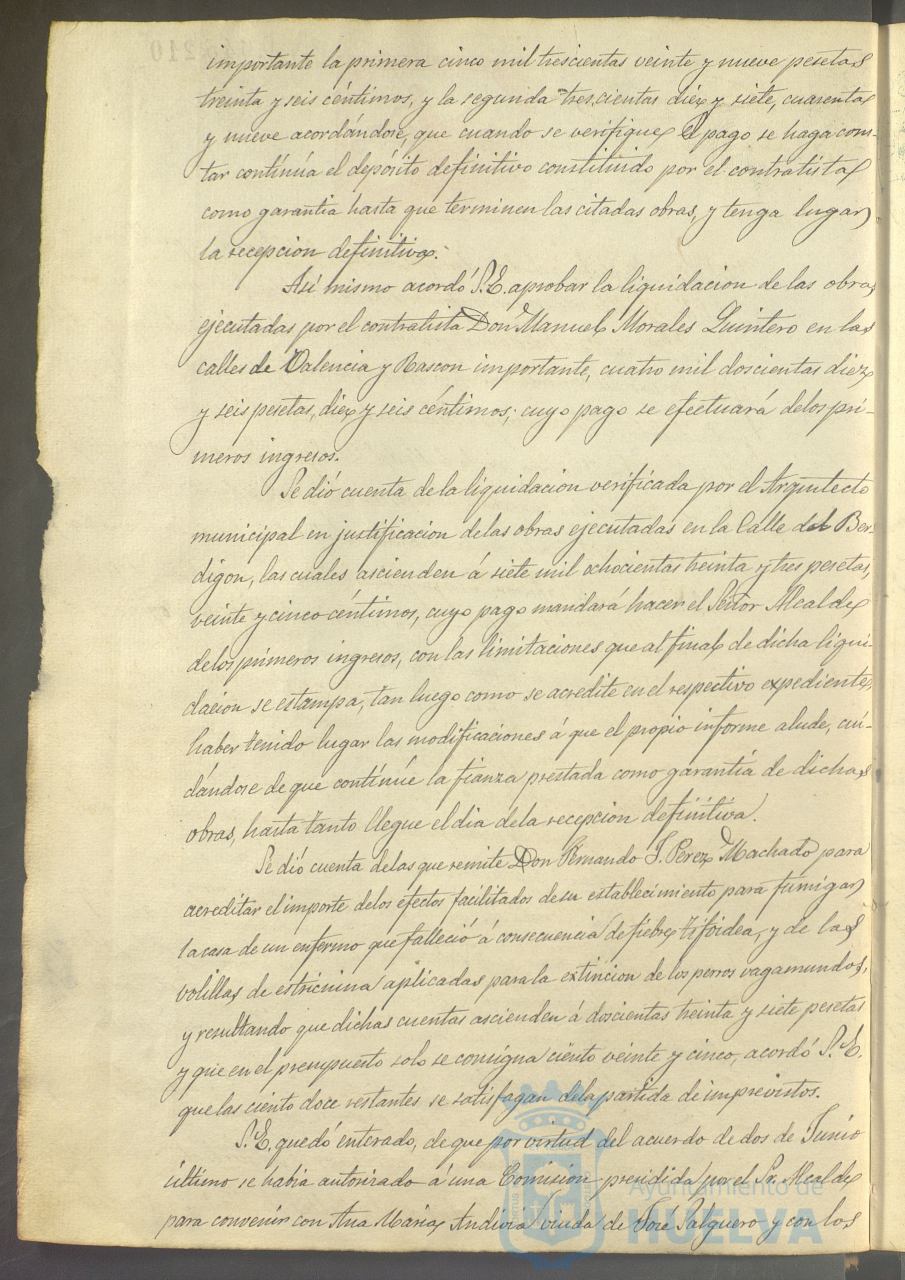 importante la primera cinco mil trescientas veinte y nueve pesetas
treinta y seis céntimos, y la segunda trescientas diez y siete, cuarenta
y nueve acordándose, que cuando se verifique el pago se haga cons-
tar continúa el depósito definitivo constituido por el contratista
como garantia hasta que terminen las citadas obras, y tenga lugar
la recepcion definitiva.
Asi mismo acordó S.E. aprobar la liquidacion de las obras
ejecutadas por el contratista Don Manuel Morales Quintero en las
calles de Valencia y Rascon importante, cuatro mil doscientas diez
y seis pesetas, diez y seis céntimos; cuyo pago se efectuará de los pri-
meros ingresos.
Se dió cuenta de la liquidacion verificada por el Arquitecto
municipal en justificacion de las obras ejecutadas en la Calle del Ber-
digon, las cuales ascienden á siete mil ochocientas treinta y tres pesetas,
veinte y cinco céntimos, cuyo pago mandará hacer el Señor Alcalde
de los primeros ingresos, con las limitaciones que al final de dicha liqui-
dacion se estampa, tan luego como se acredite en el respectivo expediente,
haber tenido lugar las modificaciones á que el propio informe alude, cui-
dándose de que continúe la fianza prestada como garantía de dichas
obras, hasta tanto llegue el dia de la recepcion definitiva.
Se dió cuenta de las que remite Don Fernando S. Perez Machado para
acreditar el importe de los efectos facilitados de su establecimiento para fumigar
la casa de un enfermo que falleció á consecuencia de fiebre tifoidea, y de las
volillas de estricnina aplicadas para la extincion de los perros vagamundos,
y resultando que dichas cuentas ascienden á doscientas treinta y siete pesetas
y que en el presupuesto solo se consigna ciento veinte y cinco, acordó S.E.
que las ciento doce restantes se satisfagan de la partida de imprevistos.
S.E. quedó enterado, de que por virtud del acuerdo de dos de Junio
último se habia autorizado á una Comisión presidida por el Sr. Alcalde
para convenir con Ana Maria Andivia viuda de José Salguero y con los
Ayuntamiento de
HUELVA